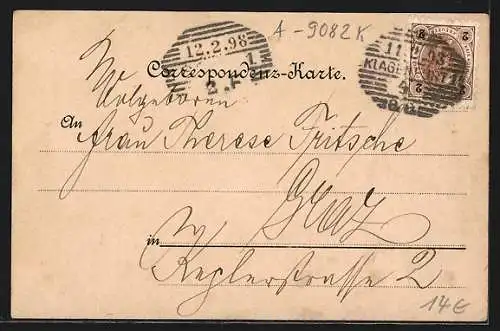 A-9082K
12.2.98
11
98
KLAGE
Correspondenz-Karte.
Wolgeboren
An Frau Therese Fritsche
Graz
in
Keplerstrasse 2
14€